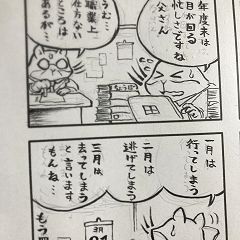 年度末は
目が回る
忙しさですね
父さん
うむ…
職業上
仕方ない
ところは
あるが…
一月は
行ってしまう
二月は
逃げてしまう
三月は
去ってしまう
と言います
もんね…
3月
もう